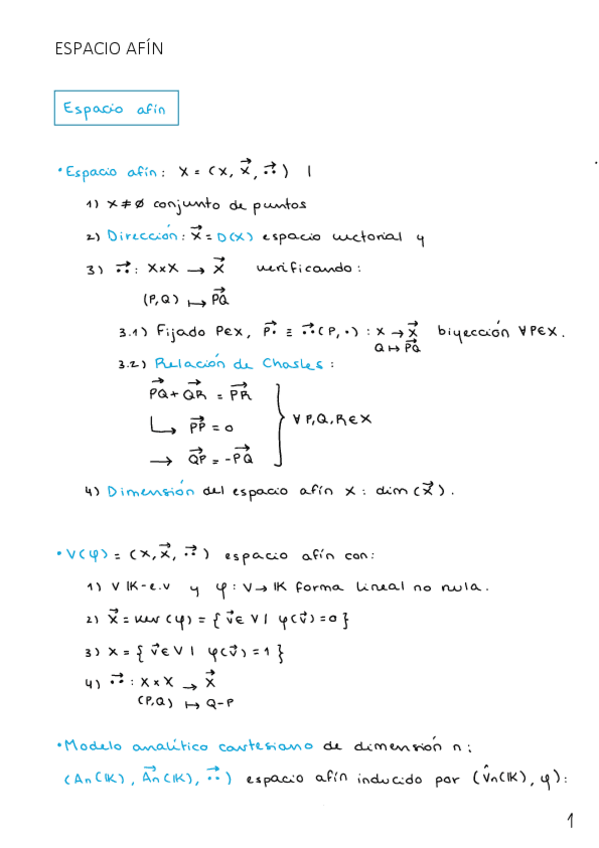 ESPACIO AFÍN
Espacio afín
• Espacio afín: X = (X, X⃗, ⃗··) |
1) X ≠ ∅ conjunto de puntos
2) Dirección: X⃗ = D(X) espacio vectorial y
3) ⃗··: X×X → X⃗ verificando:
(P,Q) ↦ PQ⃗
3.1) Fijado P∈X, P⃗· ≡ ⃗··(P,·) : X → X⃗ biyección ∀P∈X.
Q ↦ PQ⃗
3.2) Relación de Chasles:
PQ⃗ + QR⃗ = PR⃗
↳ PP⃗ = 0 } ∀ P,Q,R∈X
→ QP⃗ = -PQ⃗
4) Dimensión del espacio afín X: dim(X⃗).
• V(φ) = (X, X⃗, ⃗··) espacio afín con:
1) V IK-e.v y φ: V → IK forma lineal no nula.
2) X⃗ = ker(φ) = { v⃗ ∈ V | φ(v⃗) = 0 }
3) X = { v⃗ ∈ V | φ(v⃗) = 1 }
4) ⃗··: X×X → X⃗
(P,Q) ↦ Q-P
• Modelo analítico cartesiano de dimensión n:
(An(IK), A⃗n(IK), ⃗··) espacio afín inducido por (V̂n(IK), φ):
1